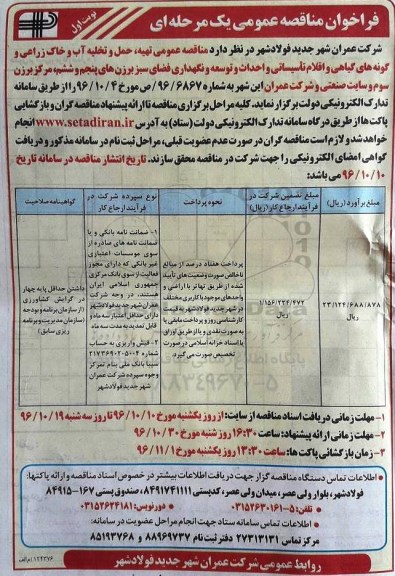 نوبت اول
فراخوان مناقصه عمومی یک مرحله ای
شرکت عمران شهر جدید فولادشهر در نظر دارد مناقصه عمومی تهیه، حمل و تخلیه آب و خاک زراعی و
گونه های گیاهی و اقلام تأسیساتی و احداث و توسعه و نگهداری فضای سبز برزن های پنجم و ششم، مرکز برزن
سوم و سایت صنعتی و شرکت عمران این شهر به شماره ۹۶/۶۸۶۷/ص مورخ ۹۶/۱۰/۴ را از طریق سامانه
تدارک الکترونیکی دولت برگزار نماید. کلیه مراحل برگزاری مناقصه تا ارائه پیشنهاد مناقصه گران و بازگشایی
پاکت ها از طریق درگاه سامانه تدارک الکترونیکی دولت (ستاد) به آدرس www.setadiran.ir انجام
خواهد شد و لازم است مناقصه گران در صورت عدم عضویت قبلی، مراحل ثبت نام در سامانه مذکور و دریافت
گواهی امضای الکترونیکی را جهت شرکت در مناقصه محقق سازند. تاریخ انتشار مناقصه در سامانه تاریخ
۹۶/۱۰/۱۰ می باشد:
مبلغ برآورد (ریال)
مبلغ تضمین شرکت در فرآیند ارجاع کار (ریال)
نحوه پرداخت
نوع سپرده شرکت در فرآیند ارجاع کار
گواهینامه صلاحیت
۲۳/۱۲۴/۶۸۸/۸۷۸
ریال
۱/۱۵۶/۲۳۴/۴۷۲
ریال
پرداخت هفتاد درصد از مبالغ
ناخالص صورت وضعیت های تأیید
شده از طریق تهاتر با اراضی و
واحدهای موجود با کاربری مختلف
در شهر جدید فولادشهر به قیمت
کارشناسی روز و پرداخت مابقی یا
به صورت نقدی و یا از طریق اوراق
یا اسناد خزانه اسلامی در صورت
تخصیص صورت می گیرد.
۱- ضمانت نامه بانکی و یا
ضمانت نامه های صادره از
سوی موسسات اعتباری
غیر بانکی که دارای مجوز
فعالیت از سوی بانک مرکزی
جمهوری اسلامی ایران
هستند، در وجه شرکت
عمران شهر جدید فولادشهر
دارای حداقل اعتبار سه ماه و
قابل تمدید به مدت سه ماه
۲- فیش واریزی به حساب
شماره ۲۱۷۳۶۹۰۲۰۵۰۰۴
سیبا بانک ملی بنام تمرکز
وجوه سپرده شرکت عمران
شهر جدید فولادشهر
داشتن حداقل پایه چهار
در گرایش کشاورزی
(از سازمان برنامه و بودجه
سازمان مدیریت و برنامه
ریزی سابق)
۱- مهلت زمانی دریافت اسناد مناقصه از سایت: از روز یکشنبه مورخ ۹۶/۱۰/۱۰ تا روز سه شنبه ۹۶/۱۰/۱۹
۲- مهلت زمانی ارائه پیشنهاد: ساعت ۱۶:۳۰ روز شنبه مورخ ۹۶/۱۰/۳۰
۳- زمان بازگشایی پاکت ها: ساعت ۱۳:۳۰ روز یکشنبه مورخ ۹۶/۱۱/۱
• اطلاعات تماس دستگاه مناقصه گزار جهت دریافت اطلاعات بیشتر در خصوص اسناد مناقصه و ارائه پاکتها:
فولادشهر، بلوار ولی عصر، میدان ولی عصر، کدپستی ۸۴۹۱۷۴۱۱۱۱، صندوق پستی ۱۶۷-۸۴۹۱۵
• تلفن: ۵-۰۳۱۵۲۶۳۰۱۶۱ • دورنویس: ۰۳۱۵۲۶۲۴۱۸۱
• اطلاعات تماس سامانه ستاد جهت انجام مراحل عضویت در سامانه:
مرکز تماس ۲۷۳۱۳۱۳۱ دفتر ثبت نام ۸۸۹۶۹۷۳۷ و ۸۵۱۹۳۷۶۸
۱۲۲۳۷۶/م الف
روابط عمومی شرکت عمران شهر جدید فولادشهر